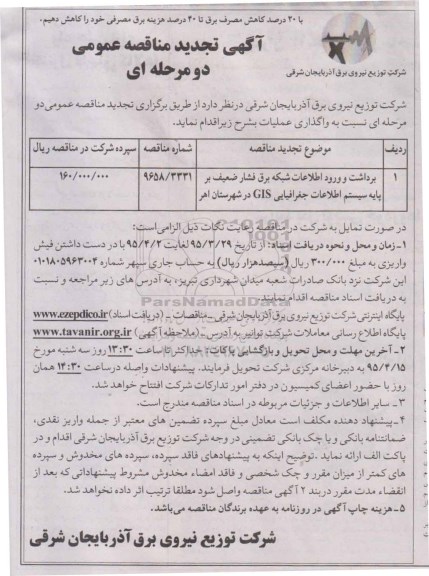 با ۲۰ درصد کاهش مصرف برق تا ۴۰ درصد هزینه برق مصرفی خود را کاهش دهیم.
آگهی تجدید مناقصه عمومی
دو مرحله ای
شرکت توزیع نیروی برق آذربایجان شرقی
شرکت توزیع نیروی برق آذربایجان شرقی درنظر دارد از طریق برگزاری تجدید مناقصه عمومی دو
مرحله ای نسبت به واگذاری عملیات بشرح زیر اقدام نماید.
ردیف موضوع تجدید مناقصه شماره مناقصه سپرده شرکت در مناقصه ریال
۱ برداشت و ورود اطلاعات شبکه برق فشار ضعیف بر ۹۶۵۸/۳۳۳۱ ۱۶۰/۰۰۰/۰۰۰
پایه سیستم اطلاعات جغرافیایی GIS در شهرستان اهر
در صورت تمایل به شرکت در مناقصه رعایت نکات ذیل الزامی است:
۱-زمان و محل و نحوه دریافت اسناد: از تاریخ ۹۵/۳/۲۹ لغایت ۹۵/۴/۲ با در دست داشتن فیش
واریزی به مبلغ ۳۰۰/۰۰۰ ریال (سیصدهزار ریال) به حساب جاری سپهر شماره ۰۱۰۱۸۰۵۹۶۳۰۰۴
این شرکت نزد بانک صادرات شعبه میدان شهرداری تبریز، به آدرس های زیر مراجعه و نسبت
به دریافت اسناد مناقصه اقدام نمایند.
ParsNamadData
پایگاه اینترنتی شرکت توزیع نیروی برق آذربایجان شرقی - مناقصات - (دریافت اسناد) www.ezepdico.ir
پایگاه اطلاع رسانی معاملات شرکت توانیر به آدرس - (ملاحظه آگهی) www.tavanir.org.ir
۲- آخرین مهلت و محل تحویل و بازگشایی پاکات: حداکثر تا ساعت ۱۳:۳۰ روز سه شنبه مورخ
۹۵/۴/۱۵ به دبیرخانه مرکزی شرکت تحویل فرمایند. پیشنهادات واصله در ساعت ۱۴:۳۰ همان
روز با حضور اعضای کمیسیون در دفتر امور تدارکات شرکت افتتاح خواهد شد.
۳- سایر اطلاعات و جزئیات مربوطه در اسناد مناقصه مندرج است.
۴-پیشنهاد دهنده مکلف است معادل مبلغ سپرده تضمین های معتبر از جمله واریز نقدی،
ضمانتنامه بانکی و یا چک بانکی تضمینی در وجه شرکت توزیع برق آذربایجان شرقی اقدام و در
پاکت الف ارائه نماید .توضیح اینکه به پیشنهادهای فاقد سپرده، سپرده های مخدوش و سپرده
های کمتر از میزان مقرر و چک شخصی و فاقد امضاء مخدوش مشروط پیشنهاداتی که بعد از
انقضاء مدت مقرر دربند ۲ آگهی مناقصه واصل شود مطلقا ترتیب اثر داده نخواهد شد.
۵-هزینه چاپ آگهی در روزنامه به عهده برندگان مناقصه می‌باشد.
شرکت توزیع نیروی برق آذربایجان شرقی